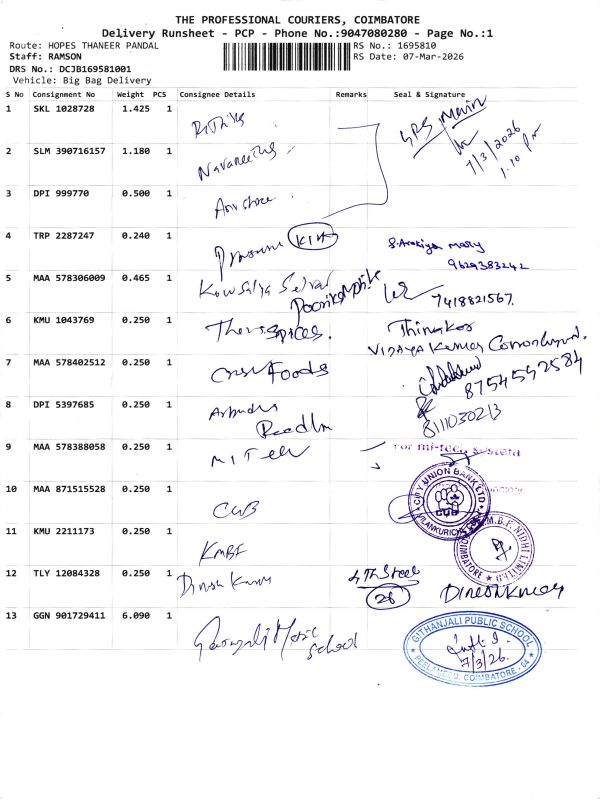 THE PROFESSIONAL COURIERS, COIMBATORE
Delivery Runsheet - PCP - Phone No.:9047080280 - Page No.:1
Route: HOPES THANEER PANDAL
RS No.: 1695810
Staff: RAMSON
RS Date: 07-Mar-2026
DRS No.: DCJB169581001
Vehicle: Big Bag Delivery
S No Consignment No Weight PCS Consignee Details Remarks Seal & Signature
1 SKL 1028728 1.425 1 Rithika
GPS Main
7/3/2026
1.10 Pm
2 SLM 390716157 1.180 1
3 DPI 999770 0.500 1
4 TRP 2287247 0.240 1
S. Arokiya Mary
9629383242
5 MAA 578306009 0.465 1 Kowsalya Selva
Poorika Mobile
7418821567.
6 KMU 1043769 0.250 1
Thinakar
Vijaya Kumar
7 MAA 578402512 0.250 1 Foods
8754592584
8 DPI 5397685 0.250 1
8111030213
9 MAA 578388058 0.250 1 MI Tech
For mi-tech system
10 MAA 871515528 0.250 1 CUB
CITY UNION BANK LTD
CUB
11 KMU 2211173 0.250 1 KMBF
K.M.B.F. NIDHI LIMITED
COIMBATORE
12 TLY 12084328 0.250 1 Dinesh Kumar
4th Street
26
Dinesh Kumar
13 GGN 901729411 6.090 1 School
GITHANJALI PUBLIC SCHOOL
7/3/26
PEELAMEDU, COIMBATORE - 04